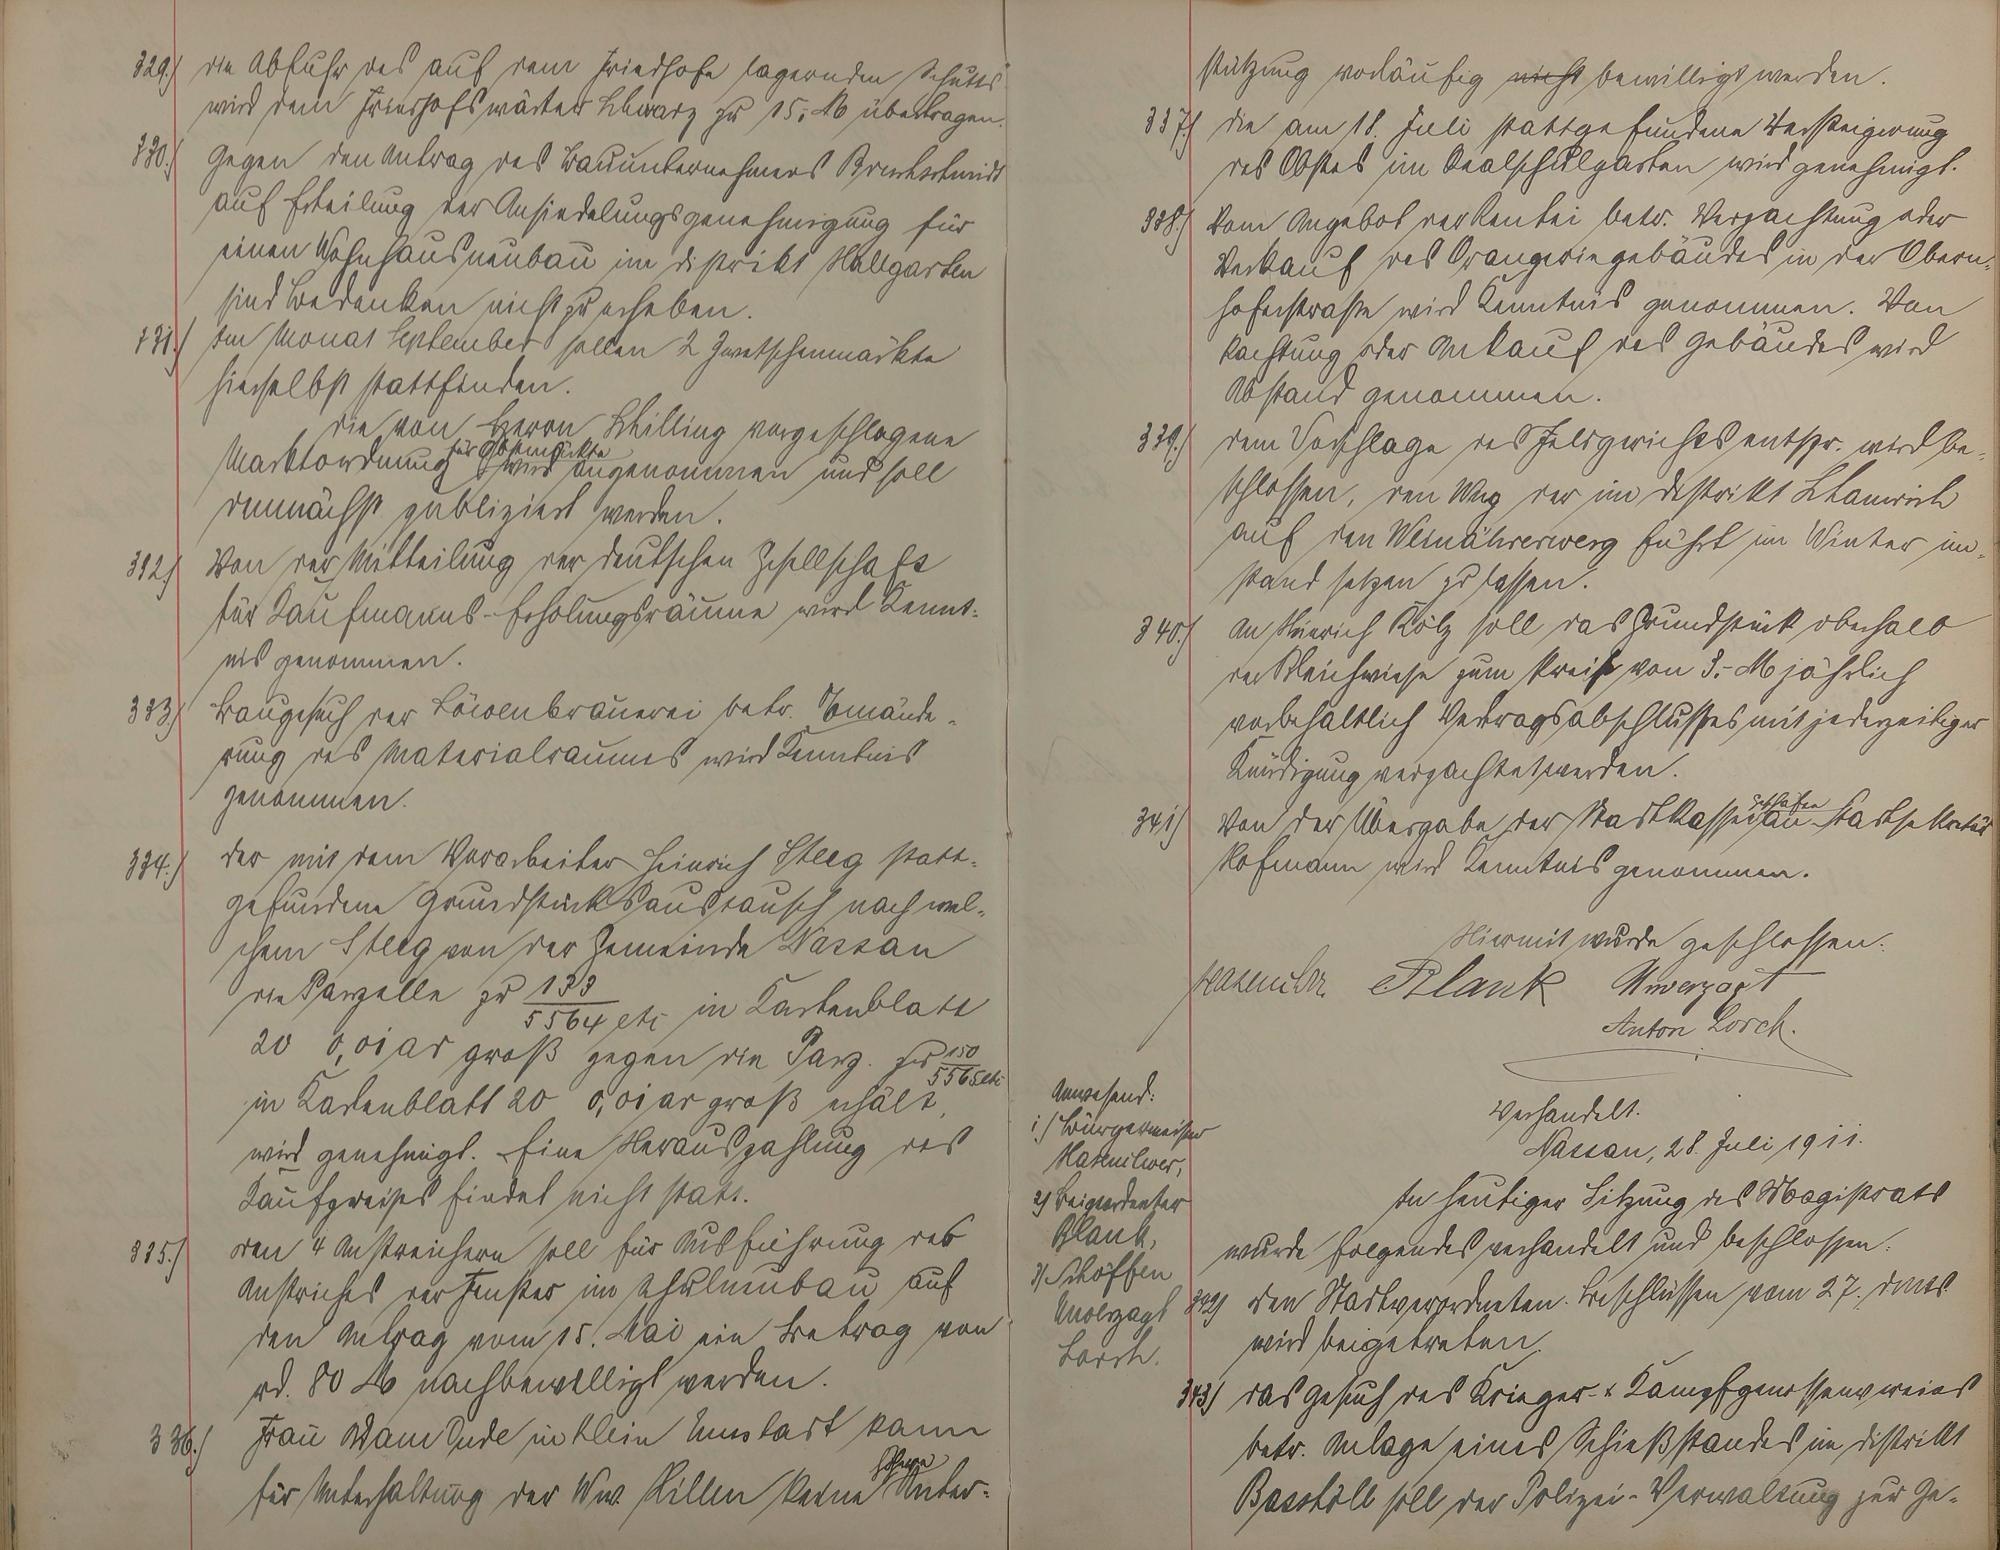 329.) die Abfuhr des auf dem Friedhofe lagernden Schutts
wird dem Friedhofswärter Schwarz zu 15,- M übertragen.
330.) Gegen den Antrag des Bauunternehmers
auf Erteilung der Ansiedelungsgenehmigung für
einen Wohnhausneubau im Distrikt Hallgarten
sind Bedenken nicht zu erheben.
331.) Im Monat September sollen 2 Zwetschenmärkte
hierselbst stattfinden.
die von Herrn Schilling vorgeschlagene
Marktordnung für Obstmärkte wird angenommen und soll
demnächst publiziert werden.
332.) Von der Mitteilung der deutschen Gesellschaft
für Kaufmanns-Erholungsräume wird Kennt-
nis genommen.
333.) Baugesuch der Löwenbrauerei betr. Umände-
rung des Materialraumes wird Kenntnis
genommen.
334.) der mit dem Vorarbeiter Heinrich Steeg statt-
gefundene Grundstücksaustausch nach wel-
chem Steeg von der Gemeinde Nassau
die Parzelle zu 133/5564 etc in Kartenblatt
20 0,01 ar groß gegen die Parz. zu 150/5565 etc
in Kartenblatt 20 0,01 ar groß erhält,
wird genehmigt. Eine Herauszahlung des
Kaufpreises findet nicht statt.
335.) den 4 Anstreichern soll für Ausführung des
Anstriches der Fenster im Schulneubau auf
den Antrag vom 15. Mai ein Betrag von
rd. 80 M nachbewilligt werden.
336.) Frau Adam in Klein Umstadt kann
für Unterhaltung der Ww. Hillen keine höhere Unter-
stützung vorläufig nicht bewilligt werden.
337.) die am 18. Juli stattgefundene Versteigerung
des Obstes im Realschulgarten wird genehmigt.
338.) Vom Angebot der Rentei betr. Verpachtung oder
Verkauf des Orangeriegebäudes in der Obern-
hoferstraße wird Kenntnis genommen. Von
Pachtung oder Ankauf des Gebäudes wird
Abstand genommen.
339.) dem Vorschlage des Feldgerichts entspr. wird be-
schlossen, den Weg der im Distrikt
auf den Weinährerweg führt im Winter in-
stand setzen zu lassen.
340.) An Heinrich Kölz soll das Grundstück oberhalb
der Bleichwiese zum Preise von 3.- M jährlich
vorbehaltlich Vertragsabschlusses mit jederzeitiger
Kündigung verpachtet werden.
341) Von der Übergabe der Stadtkassegeschäfte an Stadtsekretär
Hofmann wird Kenntnis genommen.
Hiermit wurde geschlossen.
Hasenclever Blank Unverzagt
Anton Lorch.
Verhandelt.
Nassau, 28. Juli 1911.
Anwesend:
1.) Bürgermeister
Hasenclever,
2) Beigeordneter
Blank,
3) Schöffen
Unverzagt
Lorch.
In heutiger Sitzung des Magistrats
wurde folgendes verhandelt und beschlossen:
342) den Stadtverordneten-Beschlüssen vom 27. dmts
wird beigetreten.
343) das Gesuch des Krieger- & Kampfgenossenvereins
betr. Anlage eines Schießstandes im Distrikt
soll der Polizei-Verwaltung zur Ge-